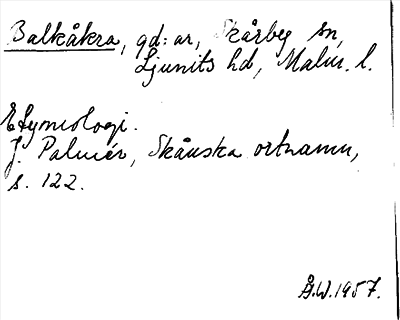 Balkåkra, gd:ar, Skårby sn,
Ljunits hd, Malm. l.
Etymologi.
J. Palmér, Skånska ortnamn,
s. 122.
Å.W.1957.